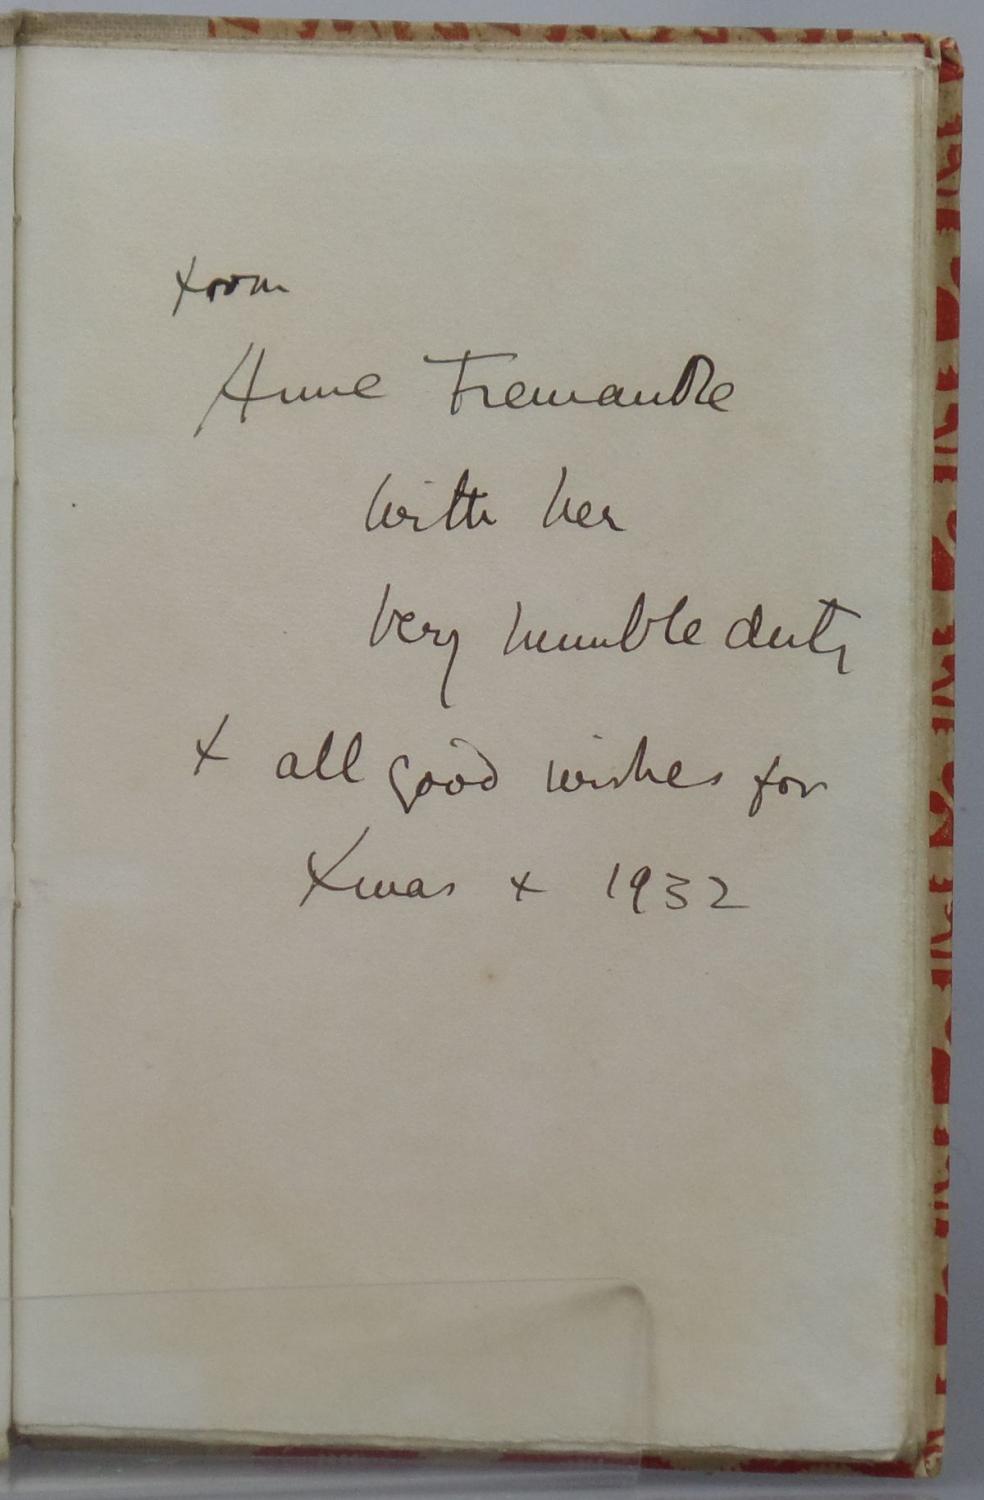 from
Anne Fremantle
with her
very humble duty
+ all good wishes for
Xmas + 1932